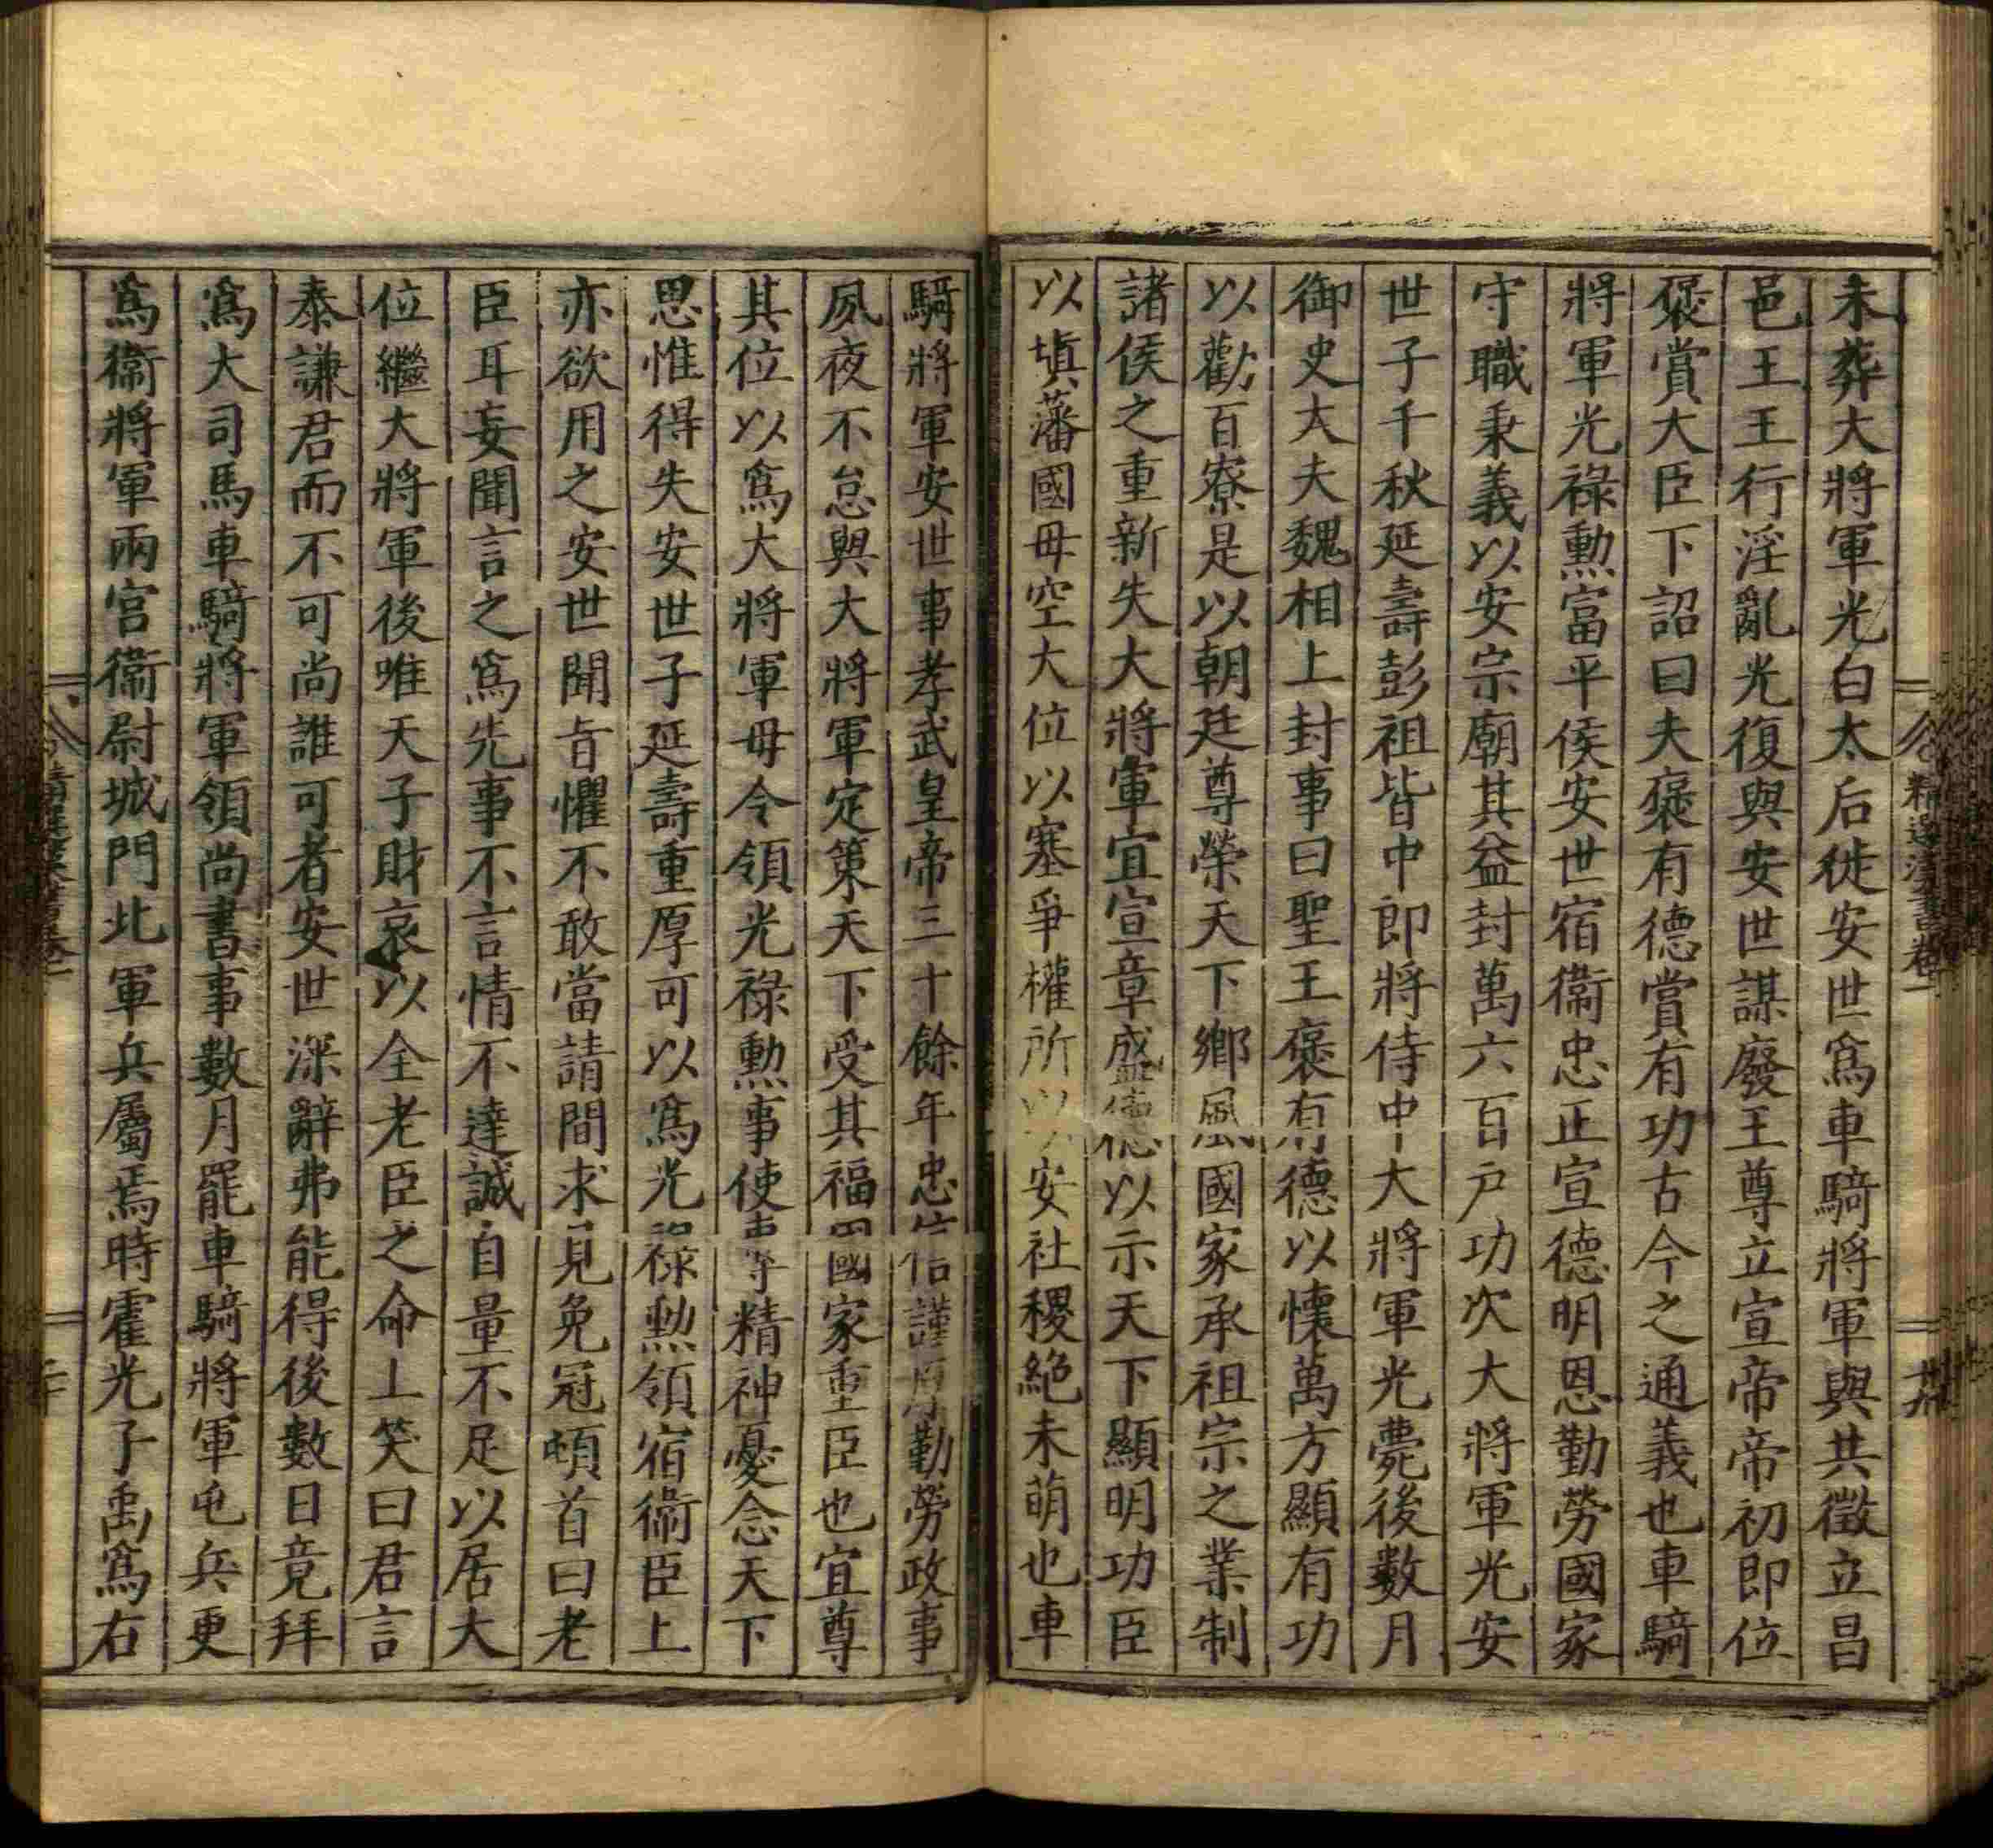 未葬大將軍光白太后徙安世爲車騎將軍與共徵立昌
邑王王行淫亂光復與安世謀廢王尊立宣帝帝初即位
襃賞大臣下詔曰夫襃有德賞有功古今之通義也車騎
將軍光祿勳富平侯安世宿衞忠正宣德明恩勤勞國家
守職秉義以安宗廟其益封萬六百戶功次大將軍光安
世子千秋延壽彭祖皆中郎將侍中大將軍光薨後數月
御史大夫魏相上封事曰聖王襃有德以懷萬方顯有功
以勸百寮是以朝廷尊榮天下鄉風國家承祖宗之業制
諸侯之重新失大將軍宜宣章盛德以示天下顯明功臣
以塡藩國毋空大位以塞爭權所以安社稷絕未萌也車
騎將軍安世事孝武皇帝三十餘年忠信謹厚勤勞政事
夙夜不怠與大將軍定策天下受其福國家重臣也宜尊
其位以爲大將軍毋令領光祿勳事使專精神憂念天下
思惟得失安世子延壽重厚可以爲光祿勳領宿衞臣上
亦欲用之安世聞旨懼不敢當請間求見免冠頓首曰老
臣耳妄聞言之爲先事不言情不達誠自量不足以居大
位繼大將軍後唯天子財哀以全老臣之命上笑曰君言
泰謙君而不可尚誰可者安世深辭弗能得後數日竟拜
爲大司馬車騎將軍領尚書事數月罷車騎將軍屯兵更
爲衞將軍兩宮衞尉城門北軍兵屬焉時霍光子禹爲右
精選漢書卷一
廿九